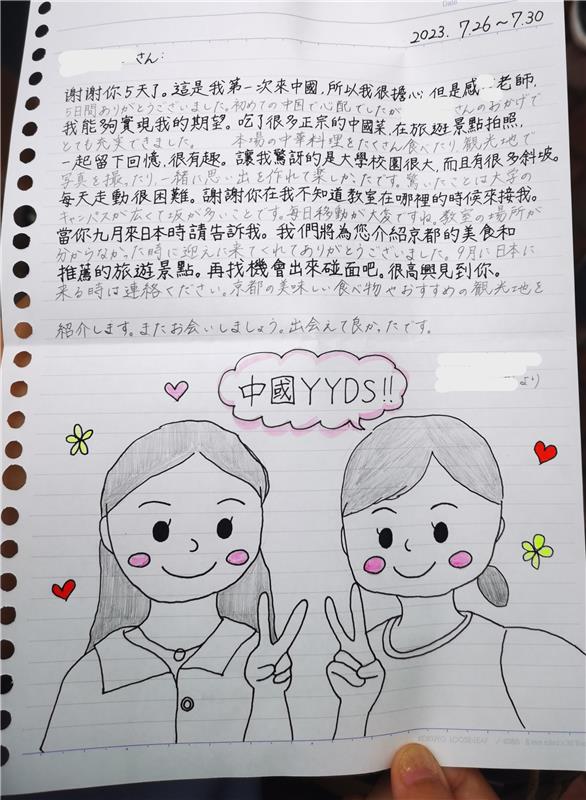 Date
2023. 7.26～7.30
さん:
謝謝你5天了。這是我第一次來中國，所以我很擔心 但是感 老師，
5日間ありがとうございました。初めての中国で心配でしたが さんのおかげで
我能夠實現我的期望。吃了很多正宗的中國菜，在旅遊景點拍照，
とても充実できました。 本場の中華料理をたくさん食べたり、観光地で
一起留下回憶，很有趣。讓我驚訝的是大學校園很大，而且有很多斜坡。
写真を撮ったり一緒に思い出を作れて楽しかったです。驚いたことは大学の
每天走動很困難。謝謝你在我不知道教室在哪裡的時候來接我。
キャンパスが広くて坂が多いことです。毎日移動が大変ですね。教室の場所が
當你九月來日本時請告訴我。我們將為您介紹京都的美食和
分からなかった時に迎えに来てくれてありがとうございました。9月に日本に
推薦的旅遊景點。再找機會出來碰面吧。很高興見到你。
来る時は連絡ください。京都の美味しい食べ物やおすすめの観光地を
紹介します。またお会いしましょう。出会えて良かったです。
より
中國YYDS!!
KOKUYO LOOSE-LEAF